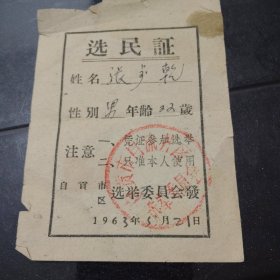 选民証
姓名 张
性别 男 年龄 22 歲
注意 一、凭证参加选举
二、只准本人使用
自貢 市区 选举委员会發
1963年5月21日